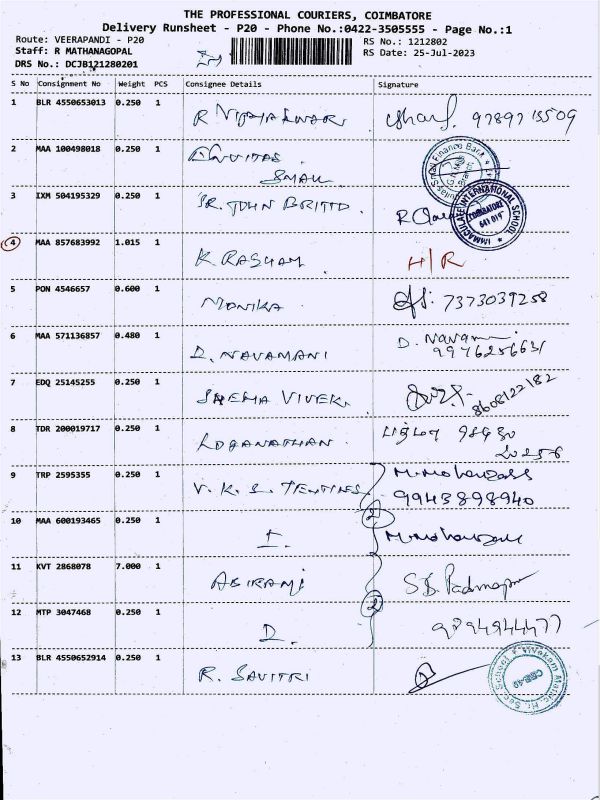 THE PROFESSIONAL COURIERS, COIMBATORE
Delivery Runsheet - P20 - Phone No.:0422-3505555 - Page No.:1
Route: VEERAPANDI - P20
RS No.: 1212802
Staff: R MATHANAGOPAL
RS Date: 25-Jul-2023
DRS No.: DCJB121280201
S No Consignment No Weight PCS Consignee Details Signature
1 BLR 4550653013 0.250 1 9789715509
2 MAA 100498018 0.250 1 SMALL
3 IXM 504195329 0.250 1 SR. JOHN BRITTO.
IMMACULATE INTERNATIONAL SCHOOL
COIMBATORE
641 019
4 MAA 857683992 1.015 1 H/R
5 PON 4546657 0.600 1 MONIKA 7373039258
6 MAA 571136857 0.480 1 D. NAVAMANI D.
9976256631
7 EDQ 25145255 0.250 1 VIVEK. 8608122182
8 TDR 200019717 0.250 1 LOGANATHAN
9 TRP 2595355 0.250 1 V. K. S.
9943898940
2
10 MAA 600193465 0.250 1
11 KVT 2868078 7.000 1 ABIRAMI
2
12 MTP 3047468 0.250 1 D. 9894944477
13 BLR 4550652914 0.250 1 R. SAVITRI